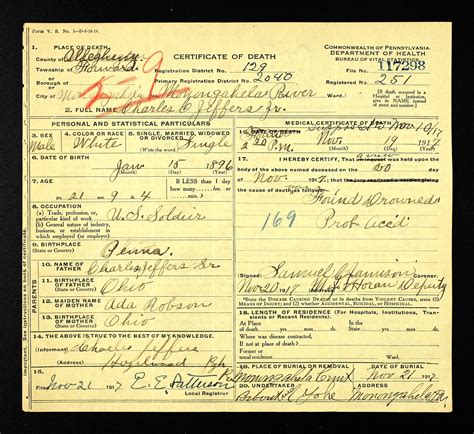 Form V. S. No. 5
1. PLACE OF DEATH
County of Allegheny
Township of Forward
or
Borough of
City of
CERTIFICATE OF DEATH
Registration District No. 129
Primary Registration District No. 2040
Monongahela River
COMMONWEALTH OF PENNSYLVANIA
DEPARTMENT OF HEALTH
BUREAU OF VITAL STATISTICS
File No. 117298
Registered No. 251
(If death occurred in a Hospital or Institution, give its NAME instead of street and number.)
2. FULL NAME Charles C. Jeffers Jr.
PERSONAL AND STATISTICAL PARTICULARS
3. SEX
Male
4. COLOR OR RACE
White
5. SINGLE, MARRIED, WIDOWED OR DIVORCED
Single
6. DATE OF BIRTH
Jan 15 1896
7. AGE
21 9 4
If LESS than 1 day
8. OCCUPATION
(a) Trade, profession, or particular kind of work
U.S. Soldier
(b) General nature of industry, business, or establishment in which employed (or employer)
9. BIRTHPLACE
(State or Country)
Penna.
PARENTS
10. NAME OF FATHER
Charles Jeffers Sr
11. BIRTHPLACE OF FATHER
(State or Country)
Ohio
12. MAIDEN NAME OF MOTHER
Ada Robson
13. BIRTHPLACE OF MOTHER
(State or Country)
Ohio
14. THE ABOVE IS TRUE TO THE BEST OF MY KNOWLEDGE
(Informant) Charles Jeffers
(Address) Hazelwood Pgh
15.
Filed Nov 21 1917 E. E. Patterson
Local Registrar
MEDICAL CERTIFICATE OF DEATH
16. DATE OF DEATH
Nov 1917
17. I HEREBY CERTIFY, That
was held upon the body of the above named deceased on 20
Nov 1917
cause of death was as follows:
Found Drowned
Prob. Acc'd
169
(Signed) Samuel C. Jamison
Coroner
Nov 20 1917 Horan Deputy
State the DISEASE CAUSING DEATH; or in deaths from VIOLENT CAUSES, state (1) MEANS OF INJURY; and (2) whether ACCIDENTAL, SUICIDAL or HOMICIDAL.
18. LENGTH OF RESIDENCE (For Hospitals, Institutions, Transients, or Recent Residents)
At place of death yrs. mos. ds.
In the State yrs. mos. ds.
Where was disease contracted, if not at place of death?
Former or usual residence
19. PLACE OF BURIAL OR REMOVAL
Monongahela
DATE OF BURIAL OR REMOVAL
Nov 21 1917
20. UNDERTAKER
ADDRESS
Monongahela Pa